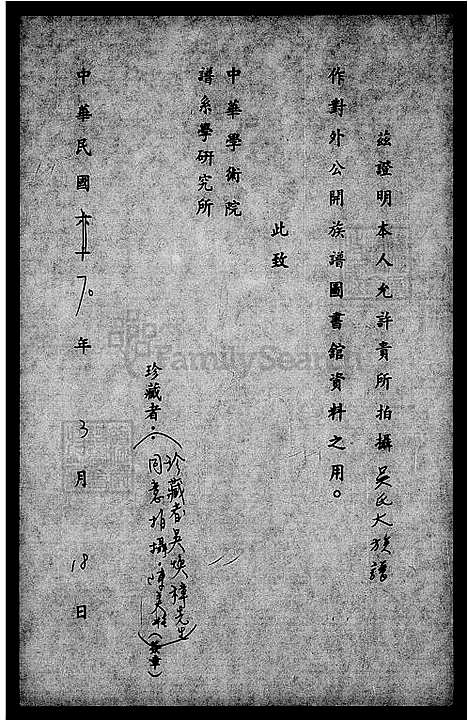 茲證明本人允許貴所拍攝吳氏大族譜
作對外公開族譜圖書館資料之用。
此致
中華學術院
譜系學研究所
珍藏者：
珍藏者吳煥璋先生
同意拍攝
(簽章)
中華民國 70年 3月 18日
FamilySearch